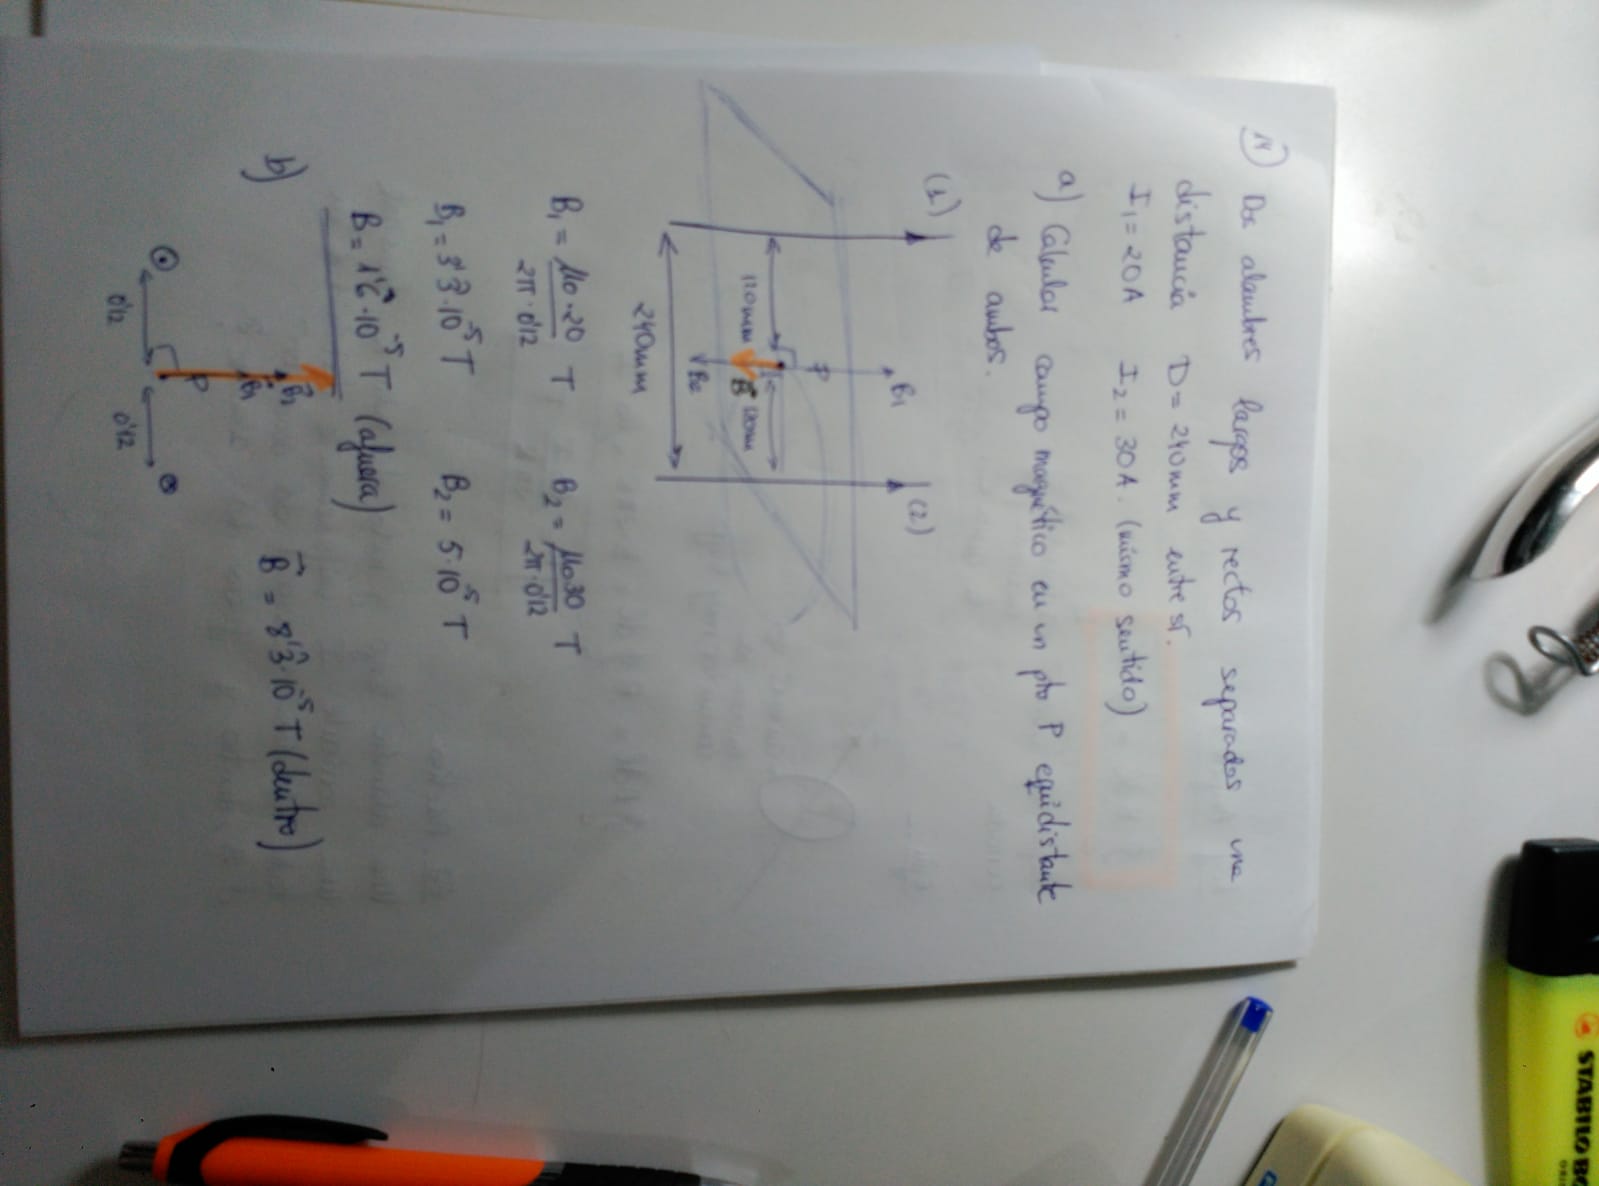 14) Dos alambres largos y rectos separados una
distancia D = 240mm entre sí.
I₁ = 20A I₂ = 30A. (mismo sentido)
a) Calcular campo magnético en un pto P equidistante
de ambos.
(1) (2)
B₁
P
110mm 120mm
B⃗
B₂
240mm
B₁ = μ₀·20 / 2π·0'12 T B₂ = μ₀·30 / 2π·0'12 T
B₁ = 3'3̂·10⁻⁵ T B₂ = 5·10⁻⁵ T
B = 1'6̂·10⁻⁵ T (afuera)
b) B⃗ = 8'3̂·10⁻⁵ T (dentro)
B⃗₂
B⃗₁
P
0'12 0'12
STABILO BO